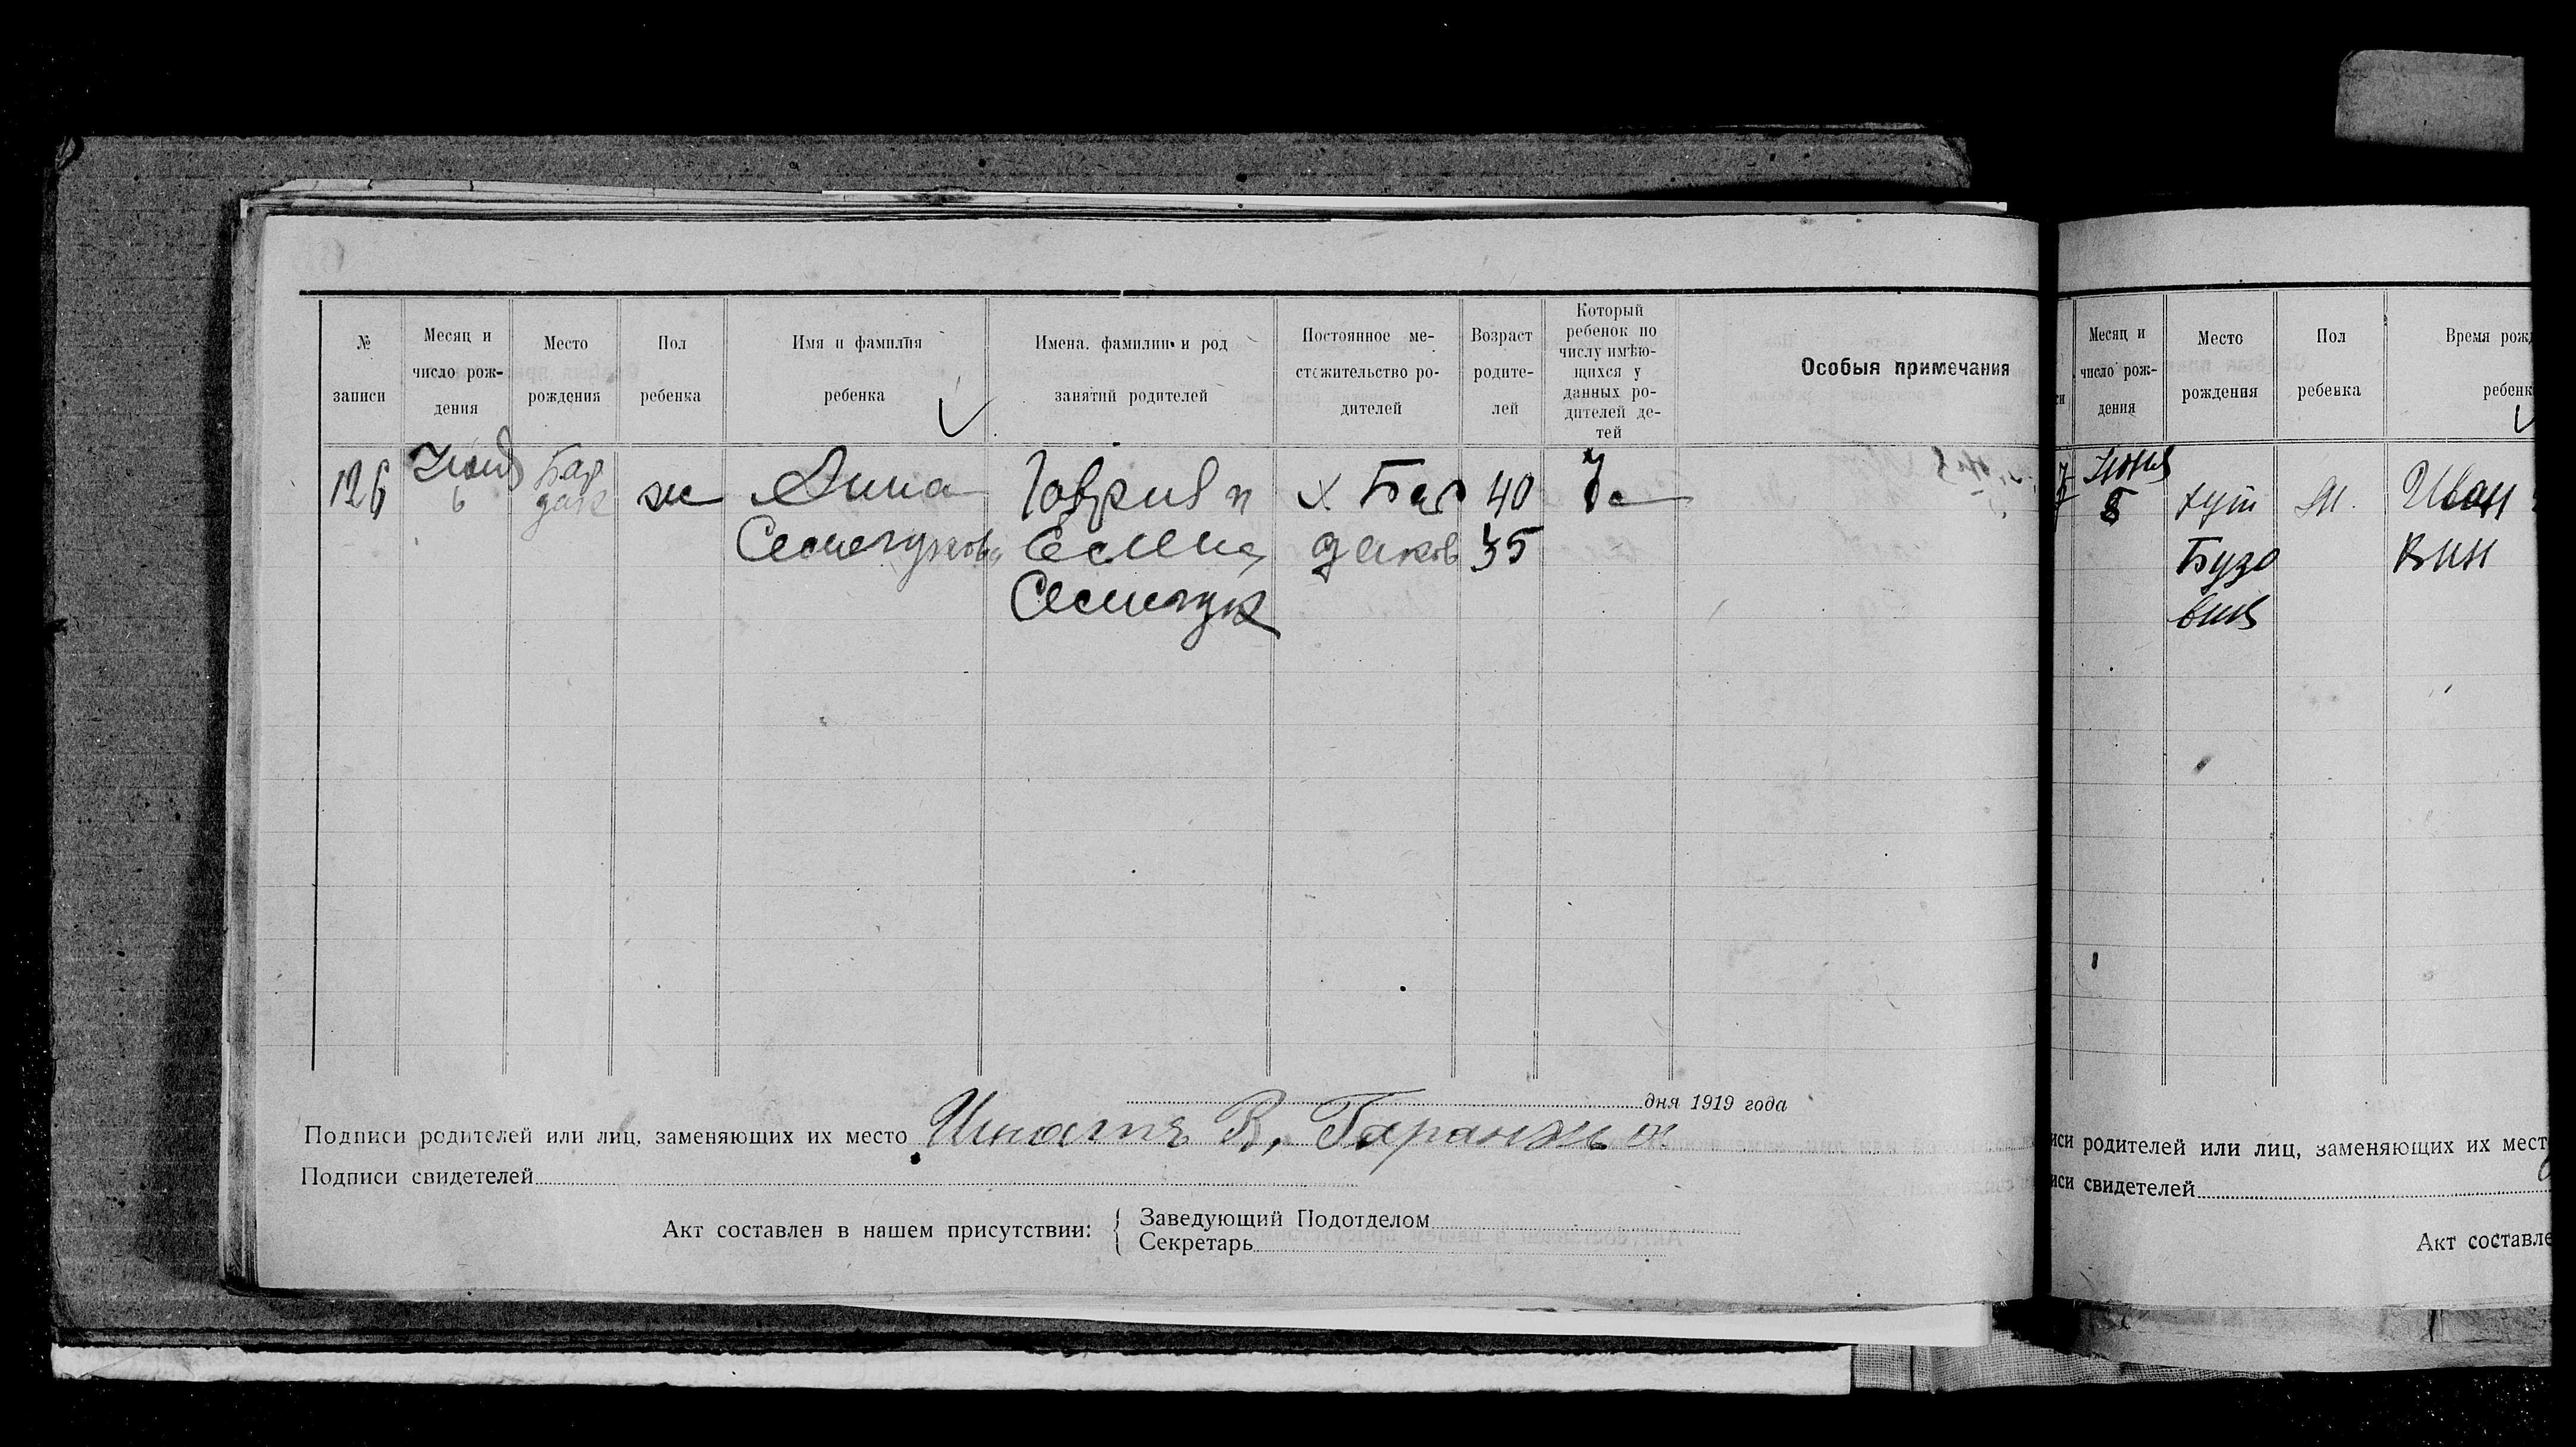 № записи
Месяц и число рождения
Место рождения
Пол ребенка
Имя и фамилия ребенка
Имена, фамилии и род занятий родителей
Постоянное местожительство родителей
Возраст родителей
Который ребенок по числу имѣющихся у данных родителей детей
Особыя примечания
126
6
ж
Анна
Гаврил и
х Бар
40
7
Елена
даков
35
дня 1919 года
Подписи родителей или лиц, заменяющих их место
Подписи свидетелей
Акт составлен в нашем присутствии:
Заведующий Подотделом
Секретарь
Месяц и число рождения
Место рождения
Пол ребенка
Время рож
ребенк
7
Июня
8
хут
М.
Иван
Бузо
вин
иси родителей или лиц, заменяющих их мест
иси свидетелей
Акт составле